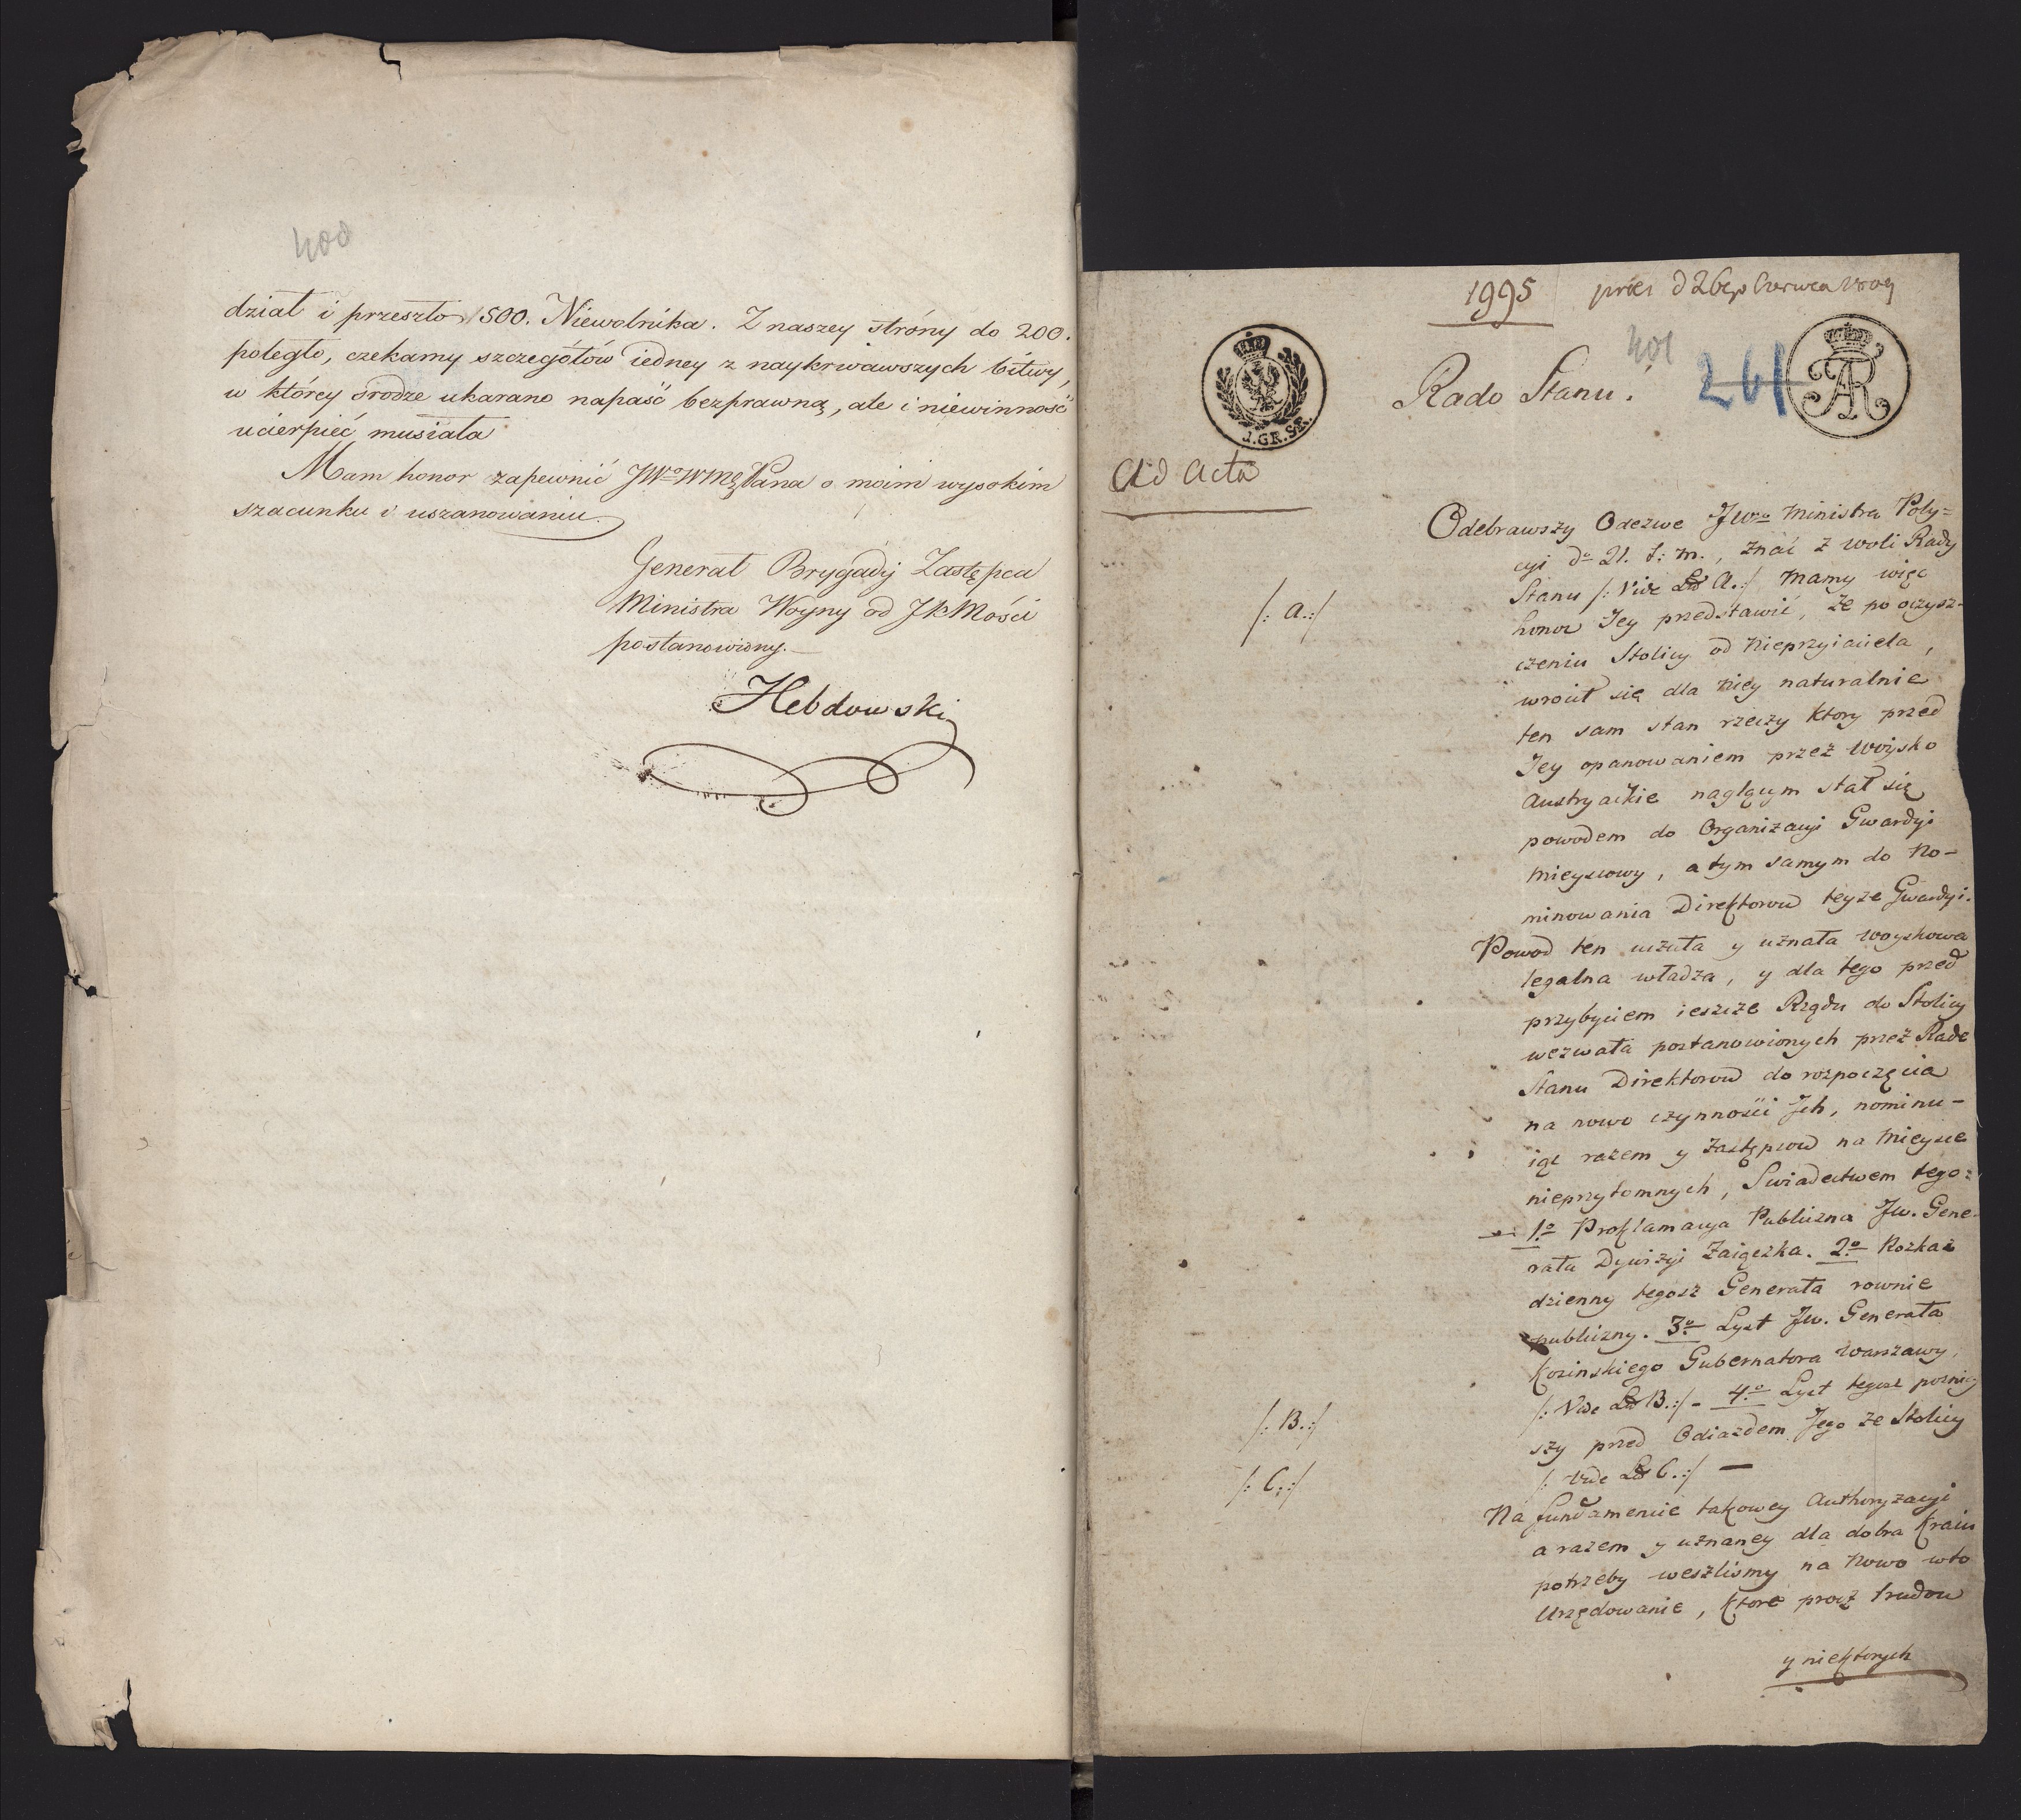 400
dział i przeszło 1500. Niewolnika. Z naszey stróny do 200.
poległo, czekamy szczegółów iedney z naykrwawszych bitwy,
w którey srodze ukarano napaść bezprawną, ale i niewinność
ucierpieć musiała
Mam honor zapewnić JWo WMę Pana o moim wysokim
szacunku i uszanowaniu.
Generał Brygady Zastępca
Ministra Woyny od JKMości
postanowiony.
Hebdowski
1995
prês d 26go Czerwca 1809
401
261
1.GR.SR.
FAR
Rado Stanu!
Ad Acta
Odebrawszy Odezwe JWgo Ministra Poly=
cyi do 21. t: m., znać z woli Rady
Stanu /: Vide Lit A.:/ mamy więc
/: A.:/
honor Jey przedstawić, że po oczysz-
czeniu Stolicy od Nieprzyiaciela,
wrócił się dla niey naturalnie
ten sam stan rzeczy ktory przed
Jey opanowaniem przez woysko
Austryackie naglącym stał się
powodem do Organizacyi Gwardyi
mieyscowy, a tym samym do No-
minowania Direktorow teyze Gwardyi.
Powod ten uczuła y uznała woyskowa
legalna władza, y dla tego przed
przybyciem ieszcze Rządu do Stolicy
wezwała postanowionych przez Rade
Stanu Direktorow do rozpoczęcia
na nowo czynności Jch, nominu-
iąc razem y Zastępcow na mieysce
nieprzytomnych, Swiadectwem tego:
1o Proklamacya Publiczna Jw. Gene-
rała Dywizyi Zaiączka. 2o Rozkaz
dzienny tegosz Generała rownie
publiczny. 3o Lyst Jw. Generała
Kosinskiego Gubernatora Warszawy,
/: Vide Lit B.:/ - 4o Lyst tegosz pozniey
/: B.:/
szy przed Odiazdem Jego ze Stolicy
/: Vide Lit C.:/ —
/: C.:/
Na fundamencie takowey Authoryzacyi
a razem y uznaney dla dobra Kraiu
potrzeby weszlismy na nowo w to
Urzędowanie, ktore procz trudow
y niektorych